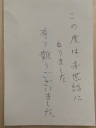 この度は お世話に
なりました
有り難うございました。